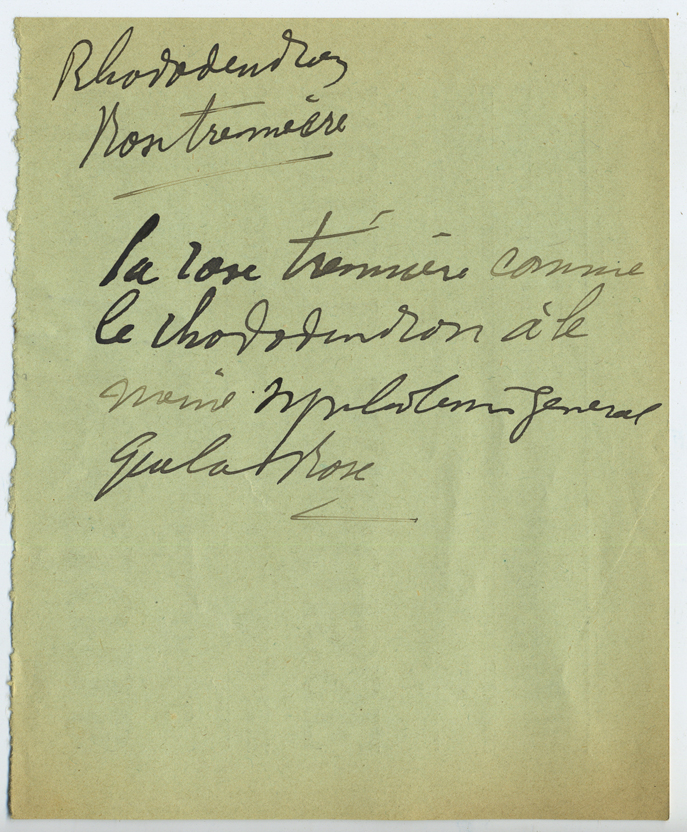 Rhododendron
Rose tremière
la rose trémière comme
le rhododendron à le
même symbolisme general
que la Rose